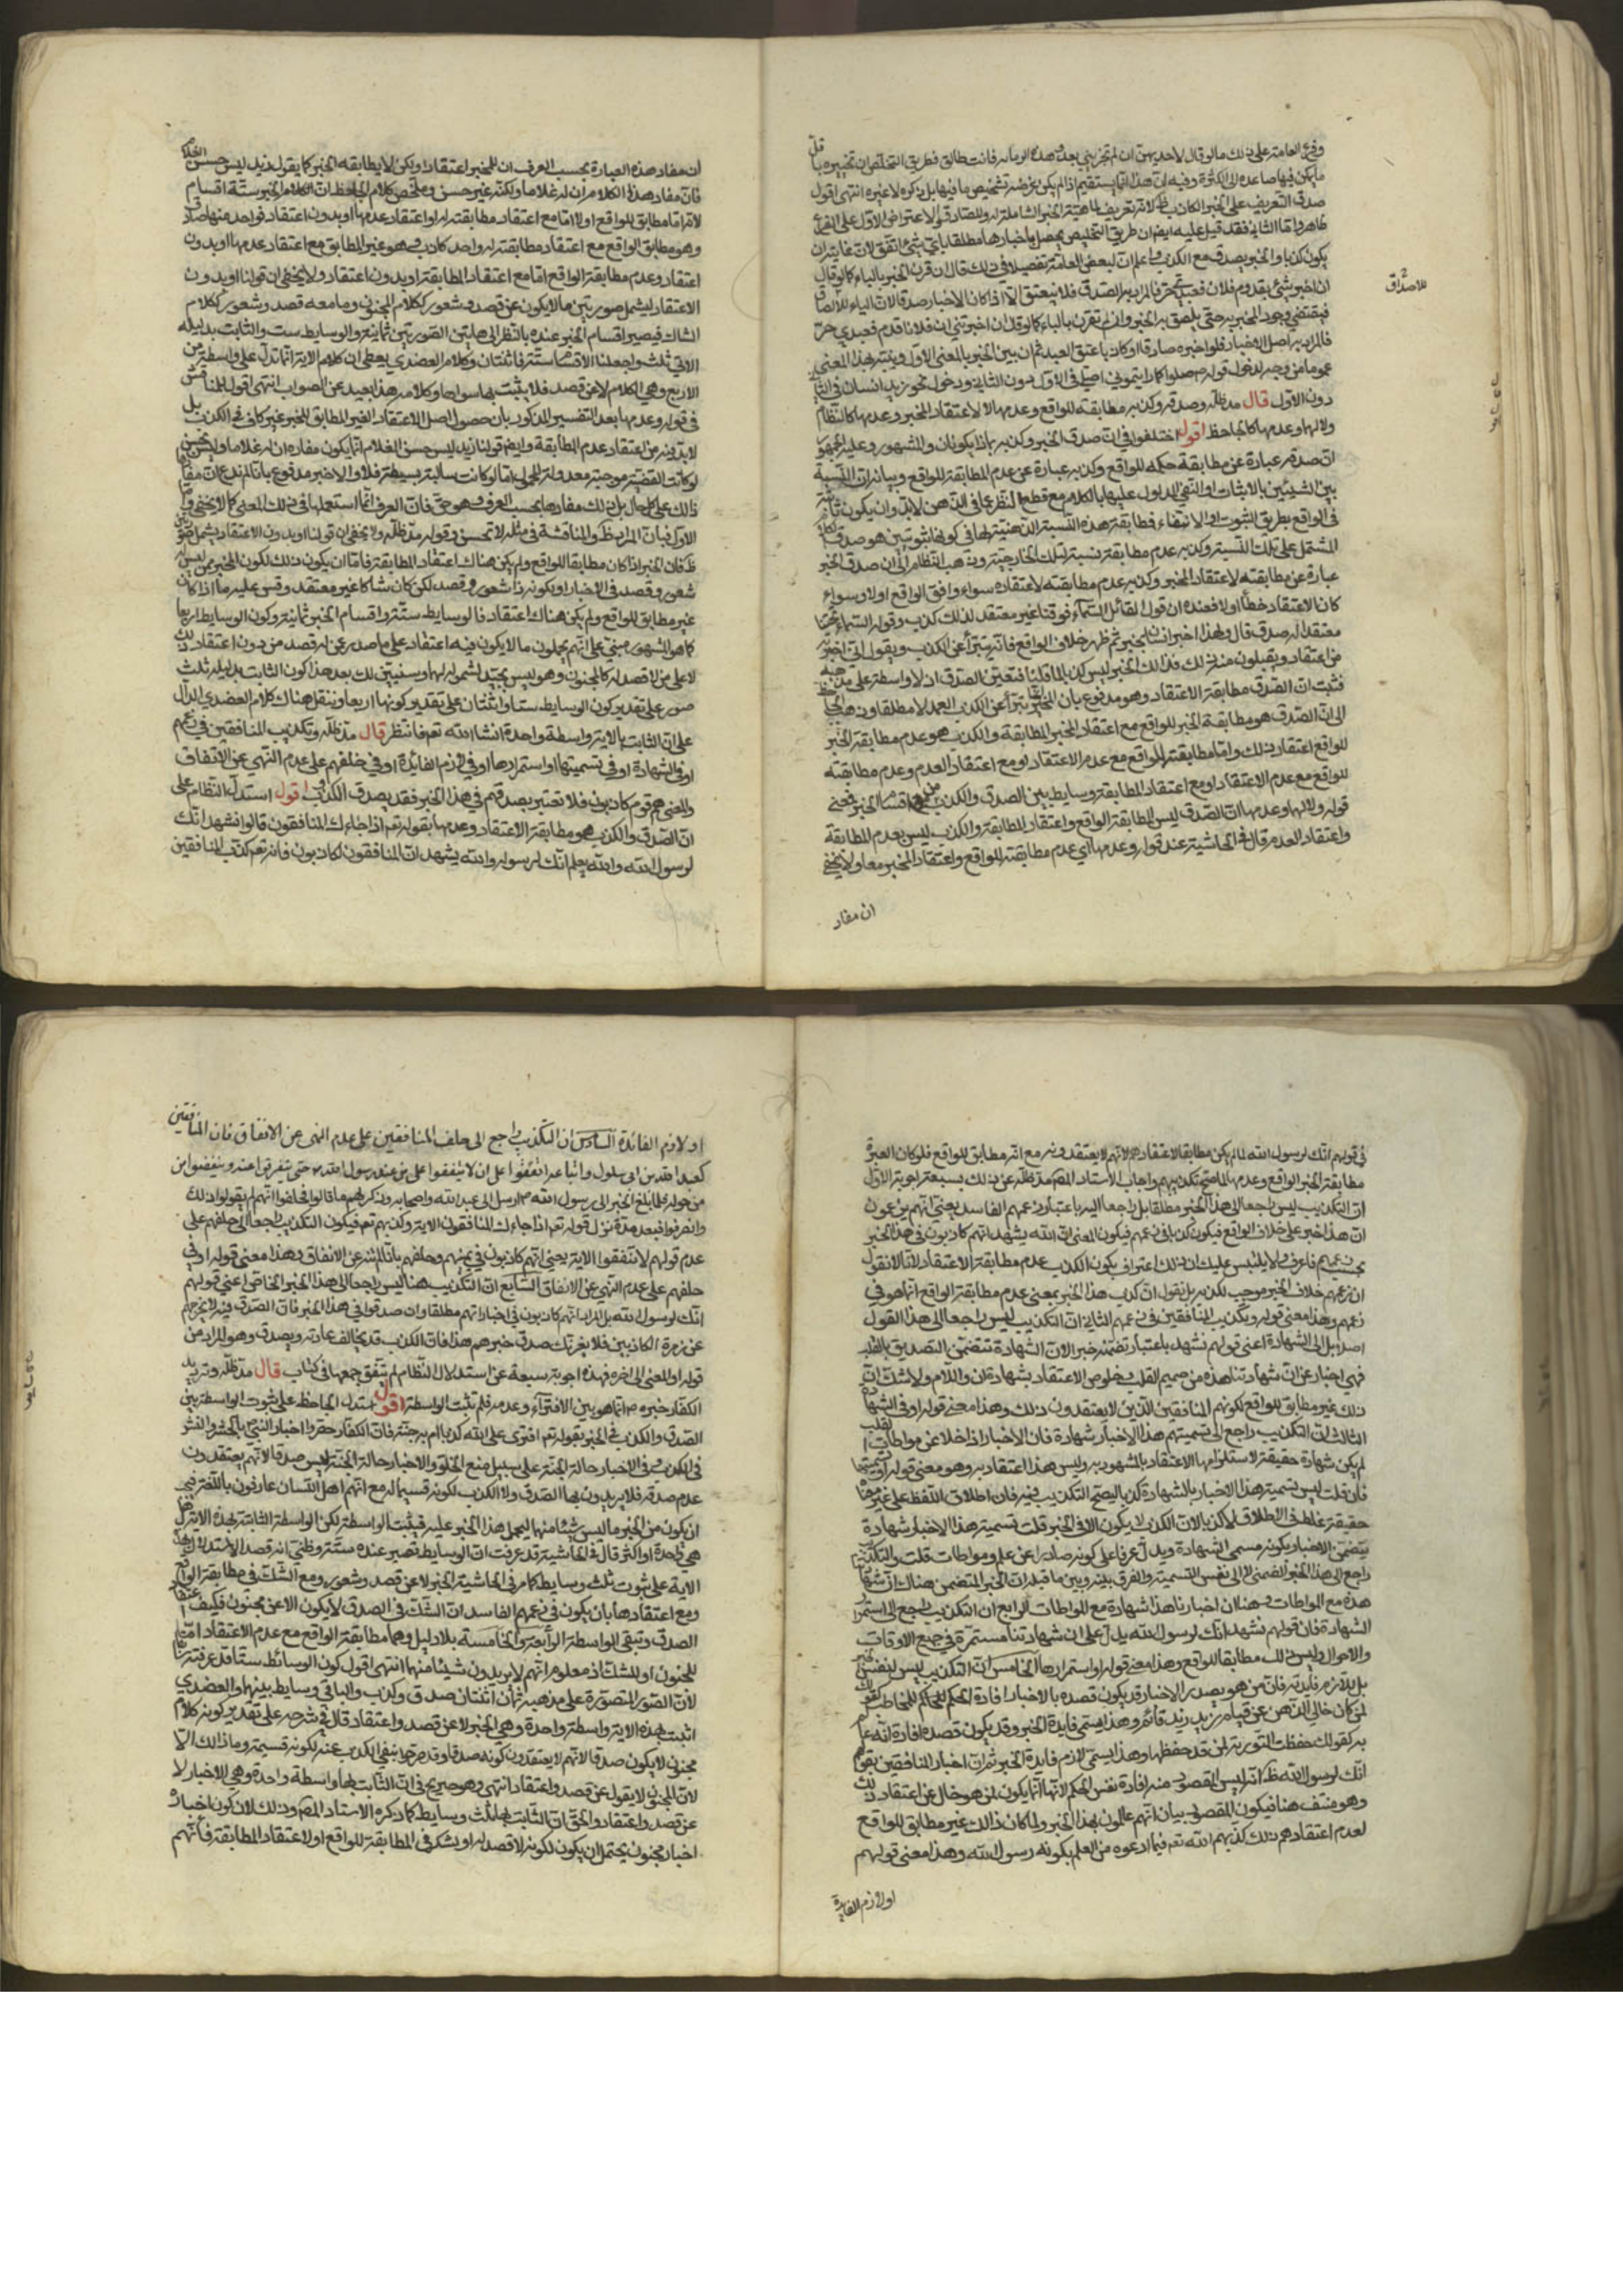 وفرع العامة على ذلك ما لو قال لاحديهن ان لم تخبريني بعدد هذه الرمانه فانت طالق فطريق التخلص ان تخبره با
ما يمكن فيها صاعدة الى الكثرة وفيه ان هذا انما يستقيم اذا لم يكن غرضه تشخيص ما فيها بل ذكره لا غيره انتهى اقول
صدق التعريف على الخبر الكاذب ظ لانه تعريف لماهية الخبر الشاملة له وللصادق والاعتراض الاول على الفرع
ظاهر واما الثاني فقد قيل عليه ايضا ان طريق التخليص يحصل باخبارها مطلقا باي شيئ اتفق لان غايته ان
يكون كذبا والخبر يصدق مع الكذب واعلم ان لبعض العامة تفصيلا في ذلك قال ان قرن الخبر بالباء كما لو قال
ان اخبرتني بقدوم فلان فعبدي حر فالمراد به الصدق فلا ينعتق الا اذا كان الاخبار صدقا لان الباء للالصاق
للاصداق
فيقتضي وجود المخبر به حتى يلصق به الخبر وان لم تقرن بالباء كما لو قال ان اخبرتني ان فلانا قدم فعبدي حر
فالمراد به اصل الاخبار فلو اخبره صادقا او كاذبا عتق العبد ثم ان بين الخبر بالمعنى الاول وبينه بهذا المعنى
عموما من وجه لدخول قوله صم صلوا كما رايتموني اصلي في الاول دون الثاني ودخول نحو زيد انسان في الثا
دون الاول قال مد ظله وصدقه وكذبه مطابقته للواقع وعدمها لا لاعتقاد المخبر وعدمها كالنظام
ولا لهما وعدمهما كالجاحظ اقول اختلفوا في ان صدق الخبر وكذبه بماذا يكونان والمشهور وعليه الجمهور
ان صدقه عبارة عن مطابقة حكمه للواقع وكذبه عبارة عن عدم المطابقة للواقع وبيانه ان النسبة
بين الشيئين بالاثبات او النفي المدلول عليها بالكلام مع قطع النظر عما في الذهن لا بد وان يكون ثابتة
في الواقع بطريق الثبوت او الانتفاء فمطابقة هذه النسبة الذهنية لها في كونهما ثبوتيين هو صدق
المشتمل على تلك النسبة وكذبه عدم مطابقة نسبته لتلك الخارجية وذهب النظام الى ان صدق الخبر
عبارة عن مطابقته لاعتقاد المخبر وكذبه عدم مطابقته لاعتقاده سواء وافق الواقع اولا وسواء
كان الاعتقاد خطأ اولا فعنده ان قول القائل السماء فوقنا غير معتقد لذلك كذب وقوله السماء تحتنا
معتقدا له صدق قال ولهذا اخبر انسان بخبر ثم ظهر خلاف الواقع فانه يتبرأ عن الكذب ويقول اني اخبرت
من اعتقاد ويقبلون منه ذلك فذلك الخبر ليس كذبا لما قلنا فتعين الصدق اذ لا واسطة على مذهبه
فثبت ان الصدق مطابقة الاعتقاد وهو مدفوع بان المخبر يتبرأ عن الكذب العمد لا مطلقا وذهب الجاحظ
الى ان الصدق هو مطابقة الخبر للواقع مع اعتقاد المخبر المطابقة والكذب هو عدم مطابقة الخبر
للواقع اعتقاد ذلك واما مطابقته للواقع مع عدم الاعتقاد او مع اعتقاد العدم وعدم مطابقته
للواقع مع عدم الاعتقاد او مع اعتقاد المطابقة وسايط بين الصدق والكذب اقسام الخبر فمعنى
قوله ولا لهما وعدمهما ان الصدق ليس المطابقة الواقع واعتقاد المطابقة والكذب ليس بعدم المطابقة
واعتقاد العدم قال في الحاشية عند قوله وعدمهما اي عدم مطابقته للواقع واعتقاد المخبر معا ولا يخفى
ان مفاد
ان مفاد هذه العبارة بحسب العرف ان للمخبر اعتقادا ولكن لا يطابقه الخبر كما يقول زيد ليس حسن الغلام
فان مفاد هذا الكلام ان له غلاما ولكنه غير حسن وملخص كلام الجاحظ ان الكلام الخبر ستة اقسام
لانه اما مطابق للواقع اولا اما مع اعتقاد مطابقته له او اعتقاد عدمها او بدون اعتقاد فواحد منها صادق
وهو مطابق الواقع مع اعتقاد مطابقته له وواحد كاذب وهو غير المطابق مع اعتقاد عدمها او بدون
اعتقاد وعدم مطابقة الواقع اما مع اعتقاد المطابقة او بدون اعتقاد ولا يخفى ان قولنا او بدون
الاعتقاد ليشمل صورتين ما لا يكون عن قصد وشعور ككلام المجنون وما معه قصد وشعور ككلام
الشاك فيصير اقسام الخبر عنده بالنظر الى هاتين الصورتين ثمانية والوسايط ست والثابت بدليله
الاتي ثلث وان جعلنا الاقسام ستة فاثنتان وكلام العضدي يعطى ان كلام الاية انما تدل على واسطة من
الاربع وهي الكلام لا عن قصد فلا يثبت بها سواها وكلامه هذا بعيد عن الصواب انتهى اقول للمناقش
في قوله وعدمها بعد التفسير المذكور بان حصول اصل الاعتقاد الغير المطابق للمخبر غير كاف في الكذب بل
لا بد فيه من اعتقاد عدم المطابقة وايضا قولنا زيد ليس حسن الغلام انما يكون مفاده ان له غلاما وليس بحسن
لو كانت القضية موجبة معدولة المحمول اما لو كانت سالبة بسيطة فلا والاخير مدفوع بانا لم ندع ان مفاد
ذلك على كل حال بل ذلك مفادها بحسب العرف وهو حق فان العرف انما استعملها في ذلك المعنى كما لا يخفى واما
الاول فبان المراد ظ والمناقشة في مثله لا تحسن وقوله مد ظله ولا يخفى ان قولنا او بدون الاعتقاد يشمل صورتين
ظ فان الخبر اذا كان مطابقا للواقع ولم يكن هناك اعتقاد المطابقة فاما ان يكون ذلك لكون المخبر ممن ليس له
شعور وقصد في الاخبار او كونه ذا شعور وقصد لكن كان شاكا غير معتقد وقس عليه ما اذا كان
غير مطابق للواقع ولم يكن هناك اعتقاد فالوسايط ستة واقسام الخبر ثمانية وكون الوسايط اربعا
كما هو المشهور مبني على انهم يحملون ما لا يكون فيه اعتقاد على ما صدر عن له قصد من دون اعتقاد ذلك
لا على من لا قصد له كالمجنون وهو ليس بجيد لشموله لهما وسنبين لك بعد هذا كون الثابت بدليله ثلث
صور على تقدير كون الوسايط ستا واثنتان على تقدير كونها اربعا وننقل هناك كلام العضدي الدال
على ان الثابت بالاية واسطة واحدة انشاء الله تعم فانتظر قال مد ظله وتكذيب المنافقين في زعمهم
او في الشهادة او في تسميتها او استمرارها او في لازم الفائدة او في حلفهم على عدم النهي عن الانفاق
والمعنى هم قوم كاذبون فلا تعتبر بصدقهم في هذا الخبر فقد يصدق الكذوب اقول استدل النظام على
ان الصدق والكذب هو مطابقة الاعتقاد وعدمها بقوله تعم اذا جاءك المنافقون قالوا نشهد انك
لرسول الله والله يعلم انك لرسوله والله يشهد ان المنافقون لكاذبون فانه تعم كذب المنافقين
في قولهم انك لرسول الله لما لم يكن مطابقا لاعتقادهم لانهم لا يعتقدونه مع انه مطابق للواقع فلو كان العبرة
مطابقة الخبر الواقع وعدمها لما صح تكذيبهم واجاب الاستاد المصم مد ظله عن ذلك بسبعة اجوبة الاول
ان التكذيب ليس راجعا الى هذا الخبر مطلقا بل راجعا اليه باعتبار زعمهم الفاسد يعني انهم يزعمون
ان هذا خبر على خلاف الواقع فيكون كذبا في زعمهم فيكون المعنى ان الله يشهد انهم كاذبون في هذا الخبر
بحسب زعمهم فاعرف ولا يلتبس عليك ان ذلك اعتراف بكون الكذب عدم مطابقة الاعتقاد لانا لا نقول
ان زعمهم خلاف الخبر موجب لكذبه بل نقول ان كذب هذا الخبر بمعنى عدم مطابقة الواقع انما هو في
زعمهم وهذا معنى قوله وتكذيب المنافقين في زعمهم الثاني ان التكذيب ليس راجعا الى هذا القول
اصلا بل الى الشهادة اعني قولهم نشهد باعتبار تضمنه خبرا لان الشهادة تتضمن التصديق بالقلب
فهي اخبار عن ان شهادتنا هذه من صميم القلب وخلوص الاعتقاد بشهادة ان واللام ولا شك ان
ذلك غير مطابق للواقع لكونهم المنافقين الذين لا يعتقدون ذلك وهذا معنى قوله او في الشهادة
الثالث ان التكذيب راجع الى تسميتهم هذا الاخبار شهادة فان الاخبار اذا خلا عن مواطات القلب
لم يكن شهادة حقيقة لاستلزامها الاعتقاد بالمشهود به وليس هذا اعتقاد به وهو معنى قوله او تسميتها
فان قلت ليس تسمية هذا الاخبار بالشهادة كذبا ليصح التكذيب فيه فان اطلاق اللفظ على غير معناه
حقيقة غلط في الاطلاق لا كذبا لان الكذب لا يكون الا في الخبر قلت تسمية هذا الاخبار شهادة
يتضمن الاخبار بكونه مسمى الشهادة ويدل عرفا على كونه صادرا عن علم ومواطات قلت والتكذيب
راجع الى هذا الخبر الضمني لا الى نفس التسمية والفرق بينه وبين ما قبله ان الخبر المتضمن هناك ان شهادتنا
هذه مع المواطات وهنا ان اخبارنا هذا شهادة مع المواطات الرابع ان التكذيب راجع الى استمرار
الشهادة فان قولهم نشهد انك لرسول الله يدل على ان شهادتنا مستمرة في جميع الاوقات
والاحوال وليس ذلك مطابقا للواقع وهذا معنى قوله او استمرارها الخامس ان التكذيب ليس لنفس الخبر
بل للازم فائدته فان من هو بصدد الاخبار قد يكون قصده بالاخبار افادة الحكم للمخاطب كقولك
لمن كان خالي الذهن عن قيام زيد زيد قائم وهذا يسمى فايدة الخبر وقد يكون قصده افادة انه عالم
به كقولك حفظت التورية لمن قد حفظها وهذا يسمى لازم فايدة الخبر ثم ان اخبار المنافقين بقولهم
انك لرسول الله ظ انه ليس المقصود منه افادة نفس الحكم لانها انما يكون لمن هو خال عن اعتقاد ذلك
وهو منتف هنا فيكون المقصود بيان انهم عالمون بهذا الخبر ولما كان ذلك غير مطابق للواقع
لعدم اعتقادهم ذلك كذبهم الله تعم فيما ادعوه من العلم بكونه رسول الله وهذا معنى قولهم
او لازم الفايدة
او لازم الفائدة السادس ان التكذيب راجع الى حلف المنافقين على عدم النهي عن الانفاق فان المنافقين
كعبد الله بن ابي سلول واتباعه اتفقوا على ان لا ينفقوا على من عند رسول الله ص حتى يتفرقوا عنه وينفضوا من
من حوله فلما بلغ الخبر الى رسول الله ص ارسل الى عبد الله واصحابه وذكر لهم ما قالوا فحلفوا انهم لم يقولوا ذلك
وانصرفوا فبعد مدة نزل قوله تعم اذا جاءك المنافقون الاية وكذبهم تعم فيكون التكذيب راجعا الى حلفهم على
عدم قولهم لا تنفقوا الاية يعني انهم كاذبون في يمينهم وحلفهم بانا لم ننه عن الانفاق وهذا معنى قوله او في
حلفهم على عدم النهي عن الانفاق السابع ان التكذيب هنا ليس راجعا الى هذا الخبر الخاص اعني قولهم
انك لرسول الله بل المراد انهم كاذبون في اخباراتهم مطلقا وان صدقوا في هذا الخبر فان الصدق فيه لا يخرجهم
عن زمرة الكاذبين فلا يغرنك صدق خبرهم هذا فان الكذب قد يخالف عادته ويصدق وهو المراد من
قوله او المعنى الى اخره فهذه اجوبة سبعة عن استدلال النظام لم يتفق جمعها في كتاب قال مد ظله وترديد
الكفار خبره ص انما هو بين الافتراء وعدمه فلم تثبت الواسطة اقول استدل الجاحظ على ثبوت الواسطة بين
الصدق والكذب في الخبر بقوله تعم افترى على الله كذبا ام به جنة فان الكفار حصروا اخبار النبي ص بالحشر والنشر
في الكذب وفي الاخبار حالة الجنة على سبيل منع الخلو والاخبار حالة الجنة ليس صدقا لانهم يعتقدون
عدم صدقه فلا يريدون بها الصدق ولا الكذب لكونه قسيما له مع انهم اهل اللسان عارفون باللغة فيجب
ان يكون من الخبر ما ليس شيئا منهما ليحمل هذا الخبر عليه فيثبت الواسطة لكن الواسطة الثابتة بهذه الاية هل
هي واحدة او اكثر قال في الحاشية قد عرفت ان الوسايط تصير عنده ستة وظني انه قصد الاستدلال بهذه
الاية على ثبوت ثلث وسايط كما مر في الحاشية الخبر لا عن قصد وشعور ومع الشك في مطابقة الواقع
ومع اعتقادها بان يكون في زعمهم الفاسد ان الشك في الصدق لا يكون الا عن مجنون فكيف اعتقاد
الصدق وتبقى الواسطة الرابعة والخامسة بلا دليل وهما مطابقة الواقع مع عدم الاعتقاد اما
للجنون او للشك اذ معلوم انهم لا يريدون شيئا منهما انتهى اقول كون الوسائط ستا قد عرفته سابقا
لان الصور المتصورة على مذهبه ثمان اثنتان صدق وكذب والباقي وسايط بينهما والعضدي
اثبت بهذه الاية واسطة واحدة وهي الخبر لا عن قصد واعتقاد قال في شرحه على تقدير كونه كلام
مجنون لا يكون صدقا لانهم لا يعتقدون كونه صدقا وقد صرحوا بنفي الكذب عنه لكونه قسيمه وما ذلك الا
لان المجنون لا يقول عن قصد واعتقاد انتهى وهو صريح في ان الثابت بها واسطة واحدة وهي الاخبار لا
عن قصد واعتقاد والحق ان الثابت بها ثلث وسايط كما ذكره الاستاد المصم وذلك لان كون اخباره
اخبار مجنون يحتمل ان يكون لكونه لا قصد له او شك في المطابقة للواقع او لاعتقاد المطابقة فانهم